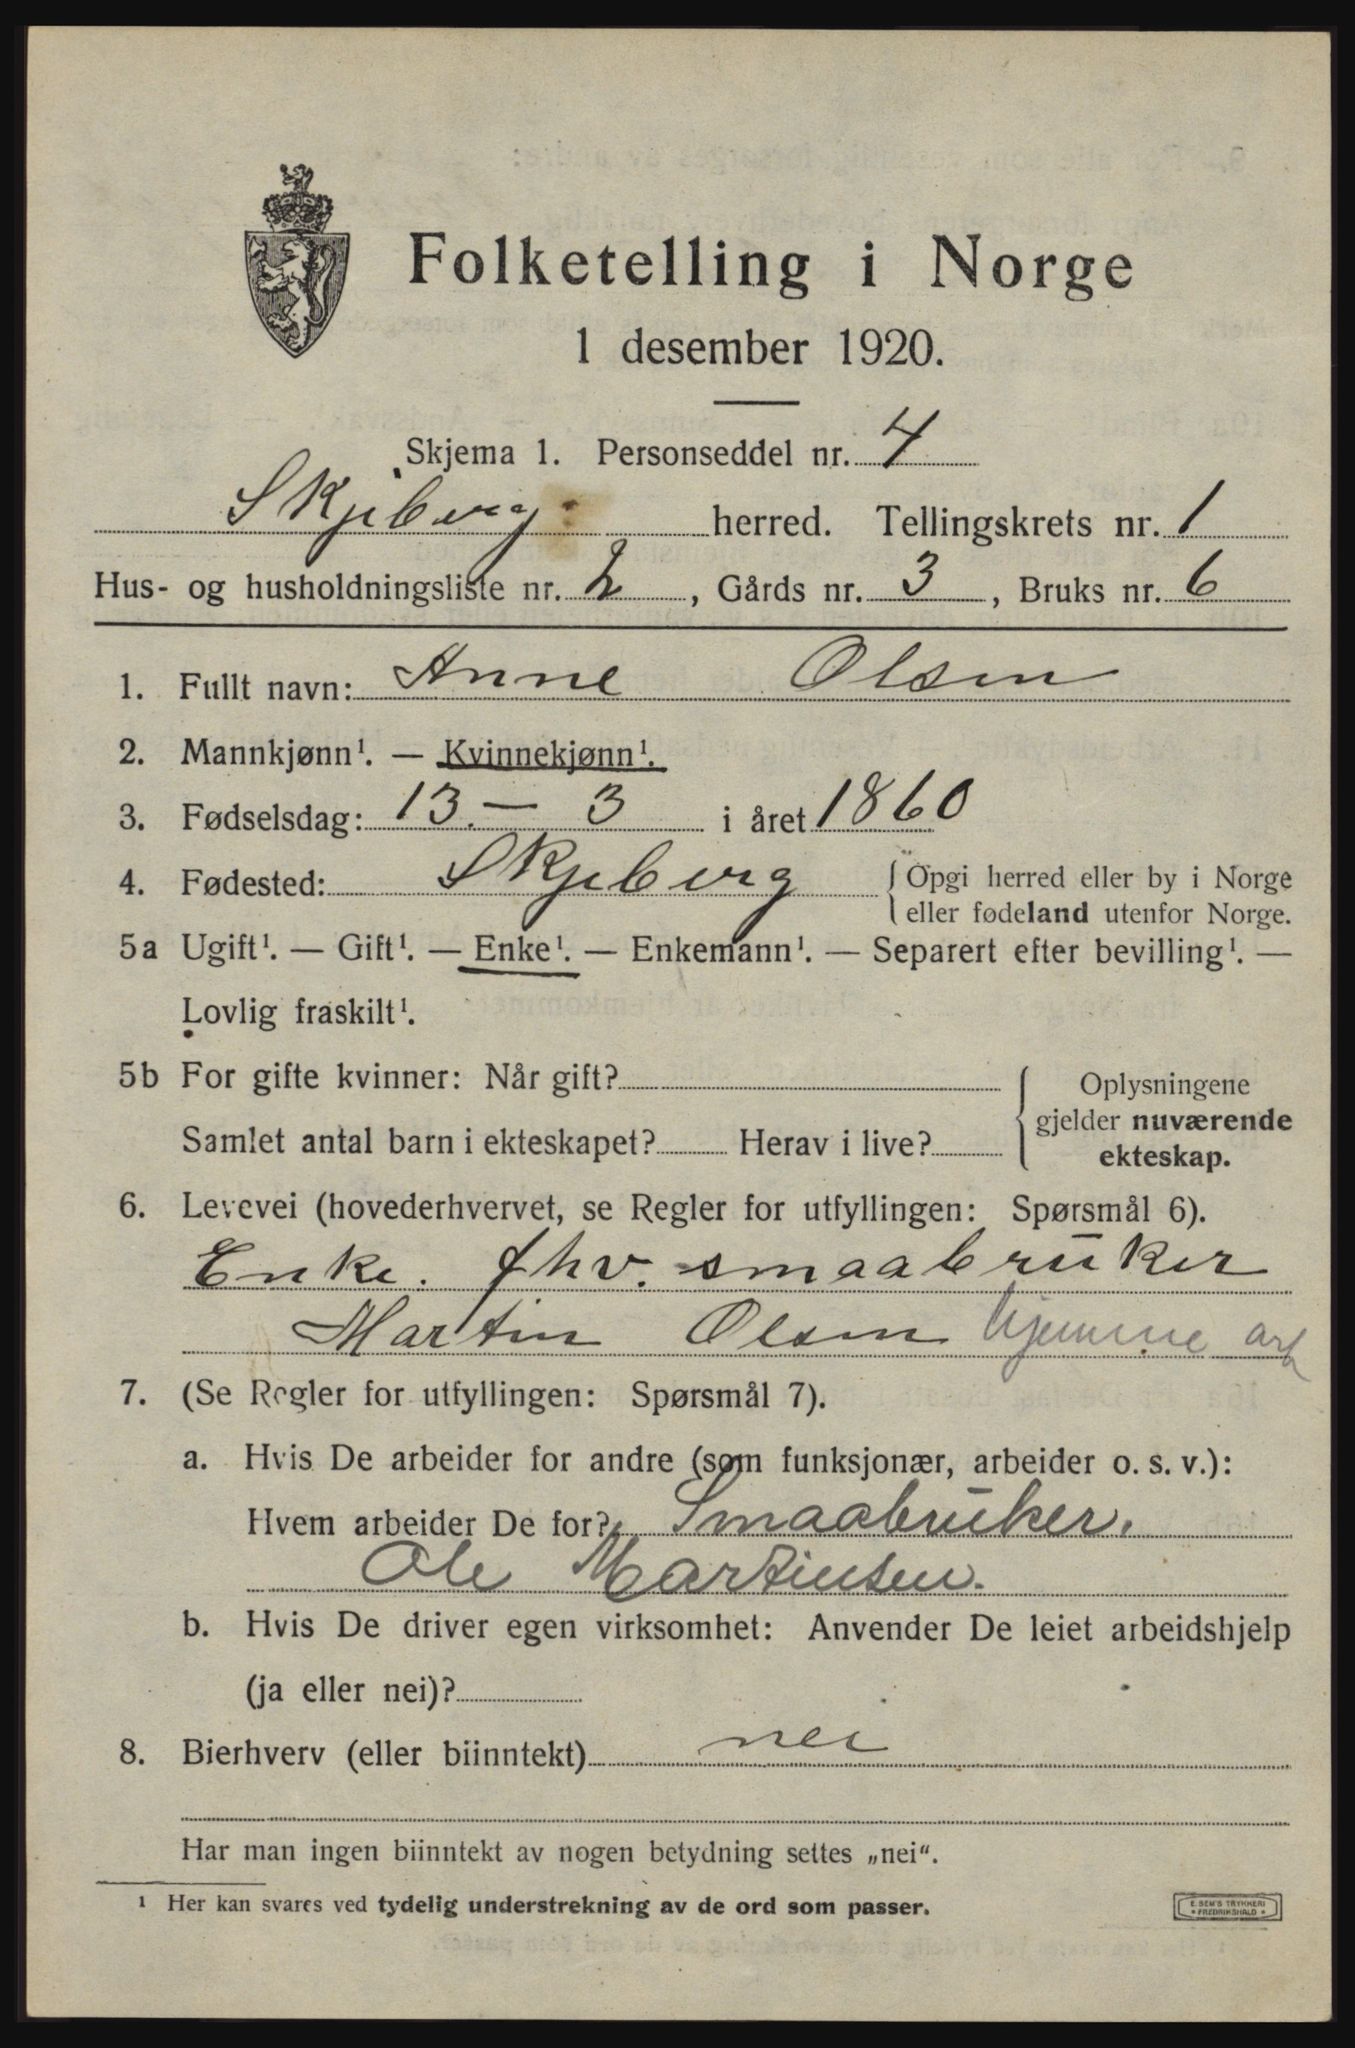 Folketelling i Norge
1 desember 1920.
Skjema 1. Personseddel nr. 4
Skjeberg herred. Tellingskrets nr. 1
Hus- og husholdningsliste nr. 2, Gårds nr. 3, Bruks nr. 6
1. Fullt navn: Anne Olsen
2. Mannkjønn¹. — Kvinnekjønn¹.
3. Fødselsdag: 13. — 3 i året 1860
4. Fødested: Skjeberg { Opgi herred eller by i Norge
eller fødeland utenfor Norge.
5a Ugift¹. — Gift¹. — Enke¹. — Enkemann¹. — Separert efter bevilling¹. —
Lovlig fraskilt¹.
5b For gifte kvinner: Når gift?
Samlet antal barn i ekteskapet? Herav i live?
Oplysningene
gjelder nuværende
ekteskap.
6. Levevei (hovederhvervet, se Regler for utfyllingen: Spørsmål 6).
Enke. fhv. smaabruker
Martin Olsen hjemme arb
7. (Se Regler for utfyllingen: Spørsmål 7).
a. Hvis De arbeider for andre (som funksjonær, arbeider o. s. v.):
Hvem arbeider De for? Smaabruker.
Ole Martinsen.
b. Hvis De driver egen virksomhet: Anvender De leiet arbeidshjelp
(ja eller nei)?
8. Bierhverv (eller biinntekt) nei
Har man ingen biinntekt av nogen betydning settes „nei“.
¹ Her kan svares ved tydelig understrekning av de ord som passer.
E. SEM'S TRYKKERI
* FREDRIKSHALD *